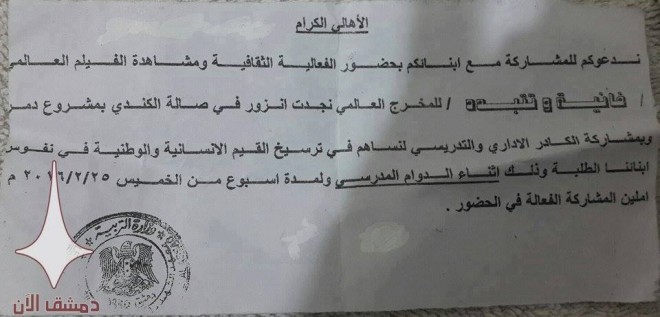 الأهالي الكرام
ندعوكم للمشاركة مع ابنائكم بحضور الفعالية الثقافية ومشاهدة الفيلم العالمي
/ فانية وتتبدد / للمخرج العالمي نجدت انزور في صالة الكندي بمشروع دمر
وبمشاركة الكادر الاداري والتدريسي لنساهم في ترسيخ القيم الانسانية والوطنية في نفوس
ابنائنا الطلبة وذلك اثناء الدوام المدرسي ولمدة اسبوع من الخميس ٢٠١٦/٢/٢٥ م
املين المشاركة الفعالة في الحضور .
وزارة التربية
دمشق الآن